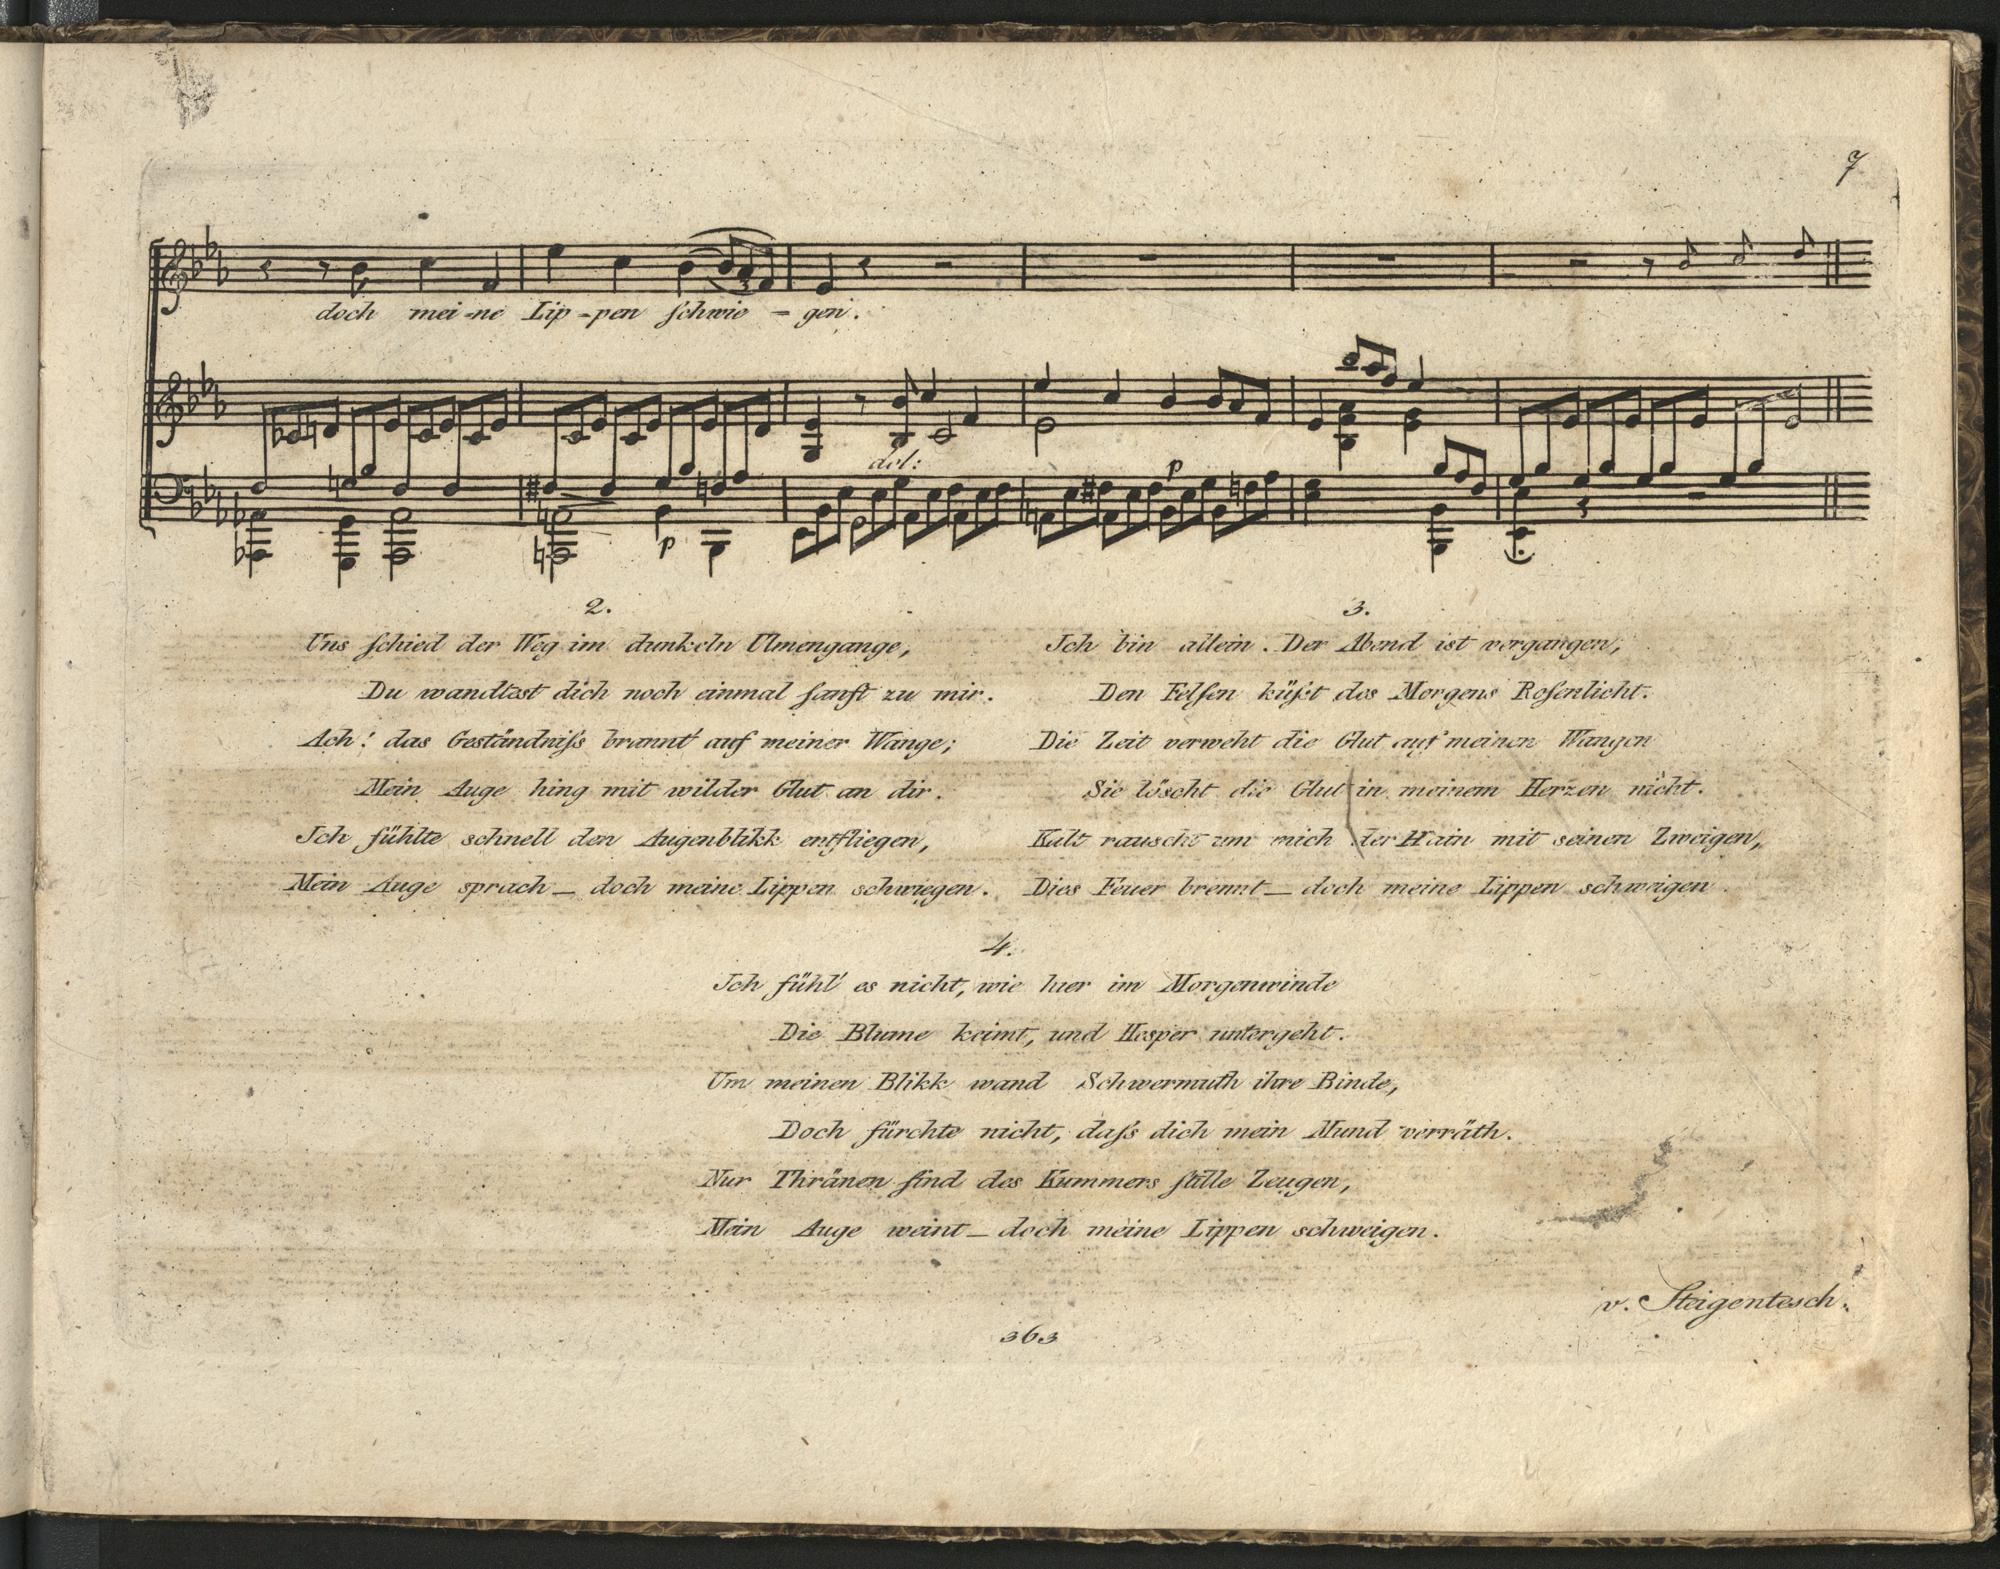 7
doch mei-ne Lip-pen ſchwie-gen.
dol:
p
p
2.
Uns ſchied der Weg im dunkeln Ulmengange,
Du wandtest dich noch einmal ſanft zu mir.
Ach! das Geständniſs brannt' auf meiner Wange;
Mein Auge hing mit wilder Glut an dir.
Ich fühlte schnell den Augenblikk entfliegen,
Mein Auge sprach_ doch meine Lippen schwiegen.
3.
Ich bin allein. Der Abend ist vergangen;
Den Felſen küſst des Morgens Roſenlicht.
Die Zeit verweht die Glut auf meinen Wangen
Sie löscht die Glut in meinem Herzen nicht.
Kalt rauscht um mich der Hain mit seinen Zweigen,
Dies Feuer brennt_ doch meine Lippen schweigen
4.
Ich fühl' es nicht, wie hier im Morgenwinde
Die Blume keimt, und Hesper untergeht.
Um meinen Blikk wand Schwermuth ihre Binde,
Doch fürchte nicht, daſs dich mein Mund verräth.
Nur Thränen ſind des Kummers ſtille Zeugen,
Mein Auge weint_ doch meine Lippen schweigen.
v. Steigentesch.
363